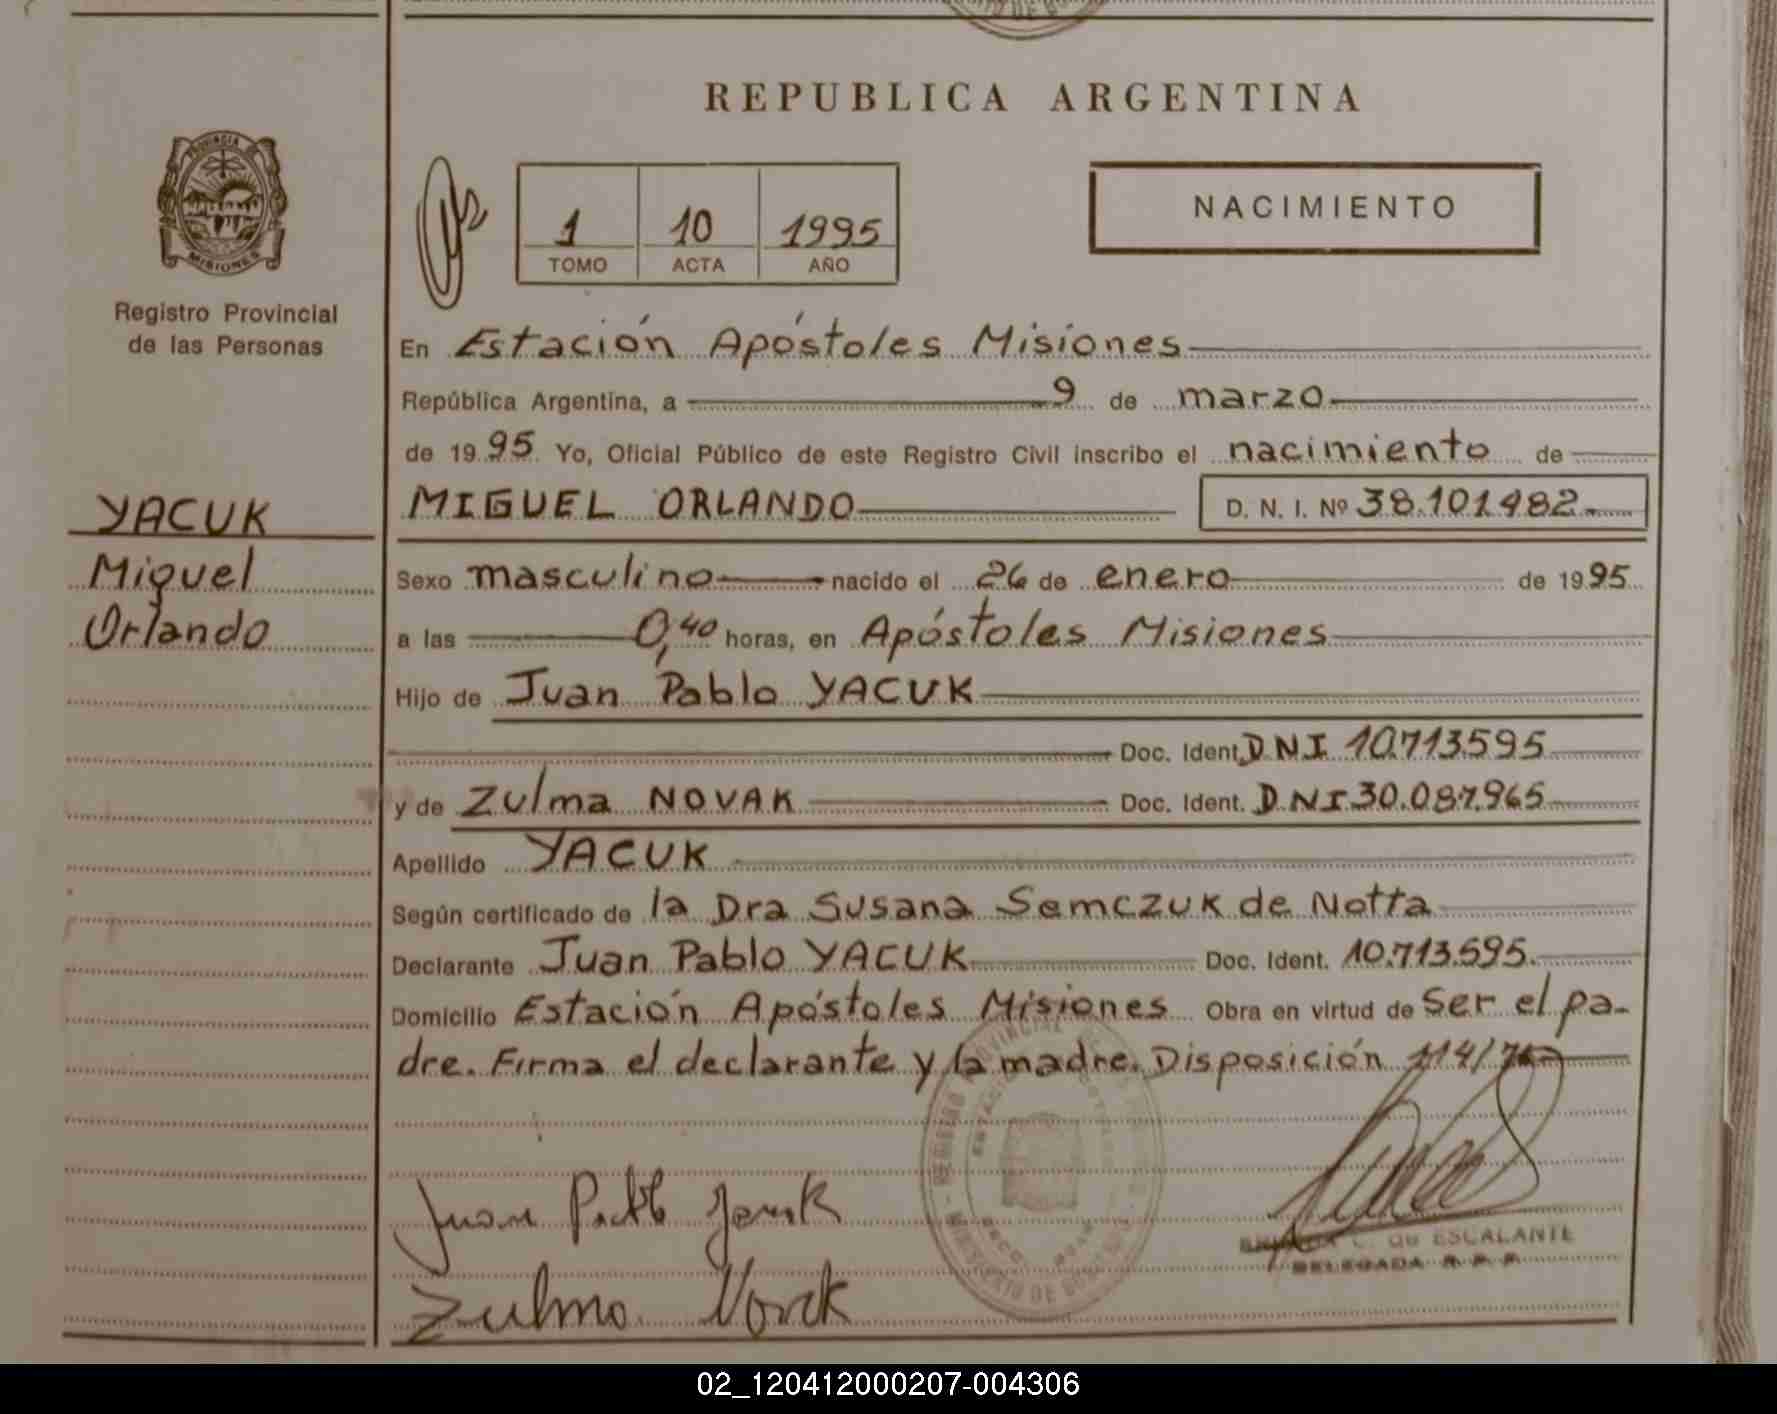 REPUBLICA ARGENTINA
PROVINCIA DE
MISIONES
Registro Provincial
de las Personas
1 10 1995
TOMO ACTA AÑO
NACIMIENTO
En Estación Apóstoles Misiones
República Argentina, a 9 de marzo
de 1995 Yo, Oficial Público de este Registro Civil inscribo el nacimiento de
YACUK
Miguel
Orlando
MIGUEL ORLANDO D. N. I. Nº 38.101.482.-
Sexo masculino nacido el 26 de enero de 1995
a las 0,40 horas, en Apóstoles Misiones
Hijo de Juan Pablo YACUK
Doc. Ident. DNI 10.713.595
y de Zulma NOVAK Doc. Ident. DNI 30.087.965
Apellido YACUK
Según certificado de la Dra Susana Semczuk de Notta
Declarante Juan Pablo YACUK Doc. Ident. 10.713.595.
Domicilio Estación Apóstoles Misiones Obra en virtud de Ser el pa-
dre. Firma el declarante y la madre. Disposición 114/
Juan Pablo Yacuk
Zulma Novak
C. de ESCALANTE
DELEGADA R.P.P.
02_120412000207-004306